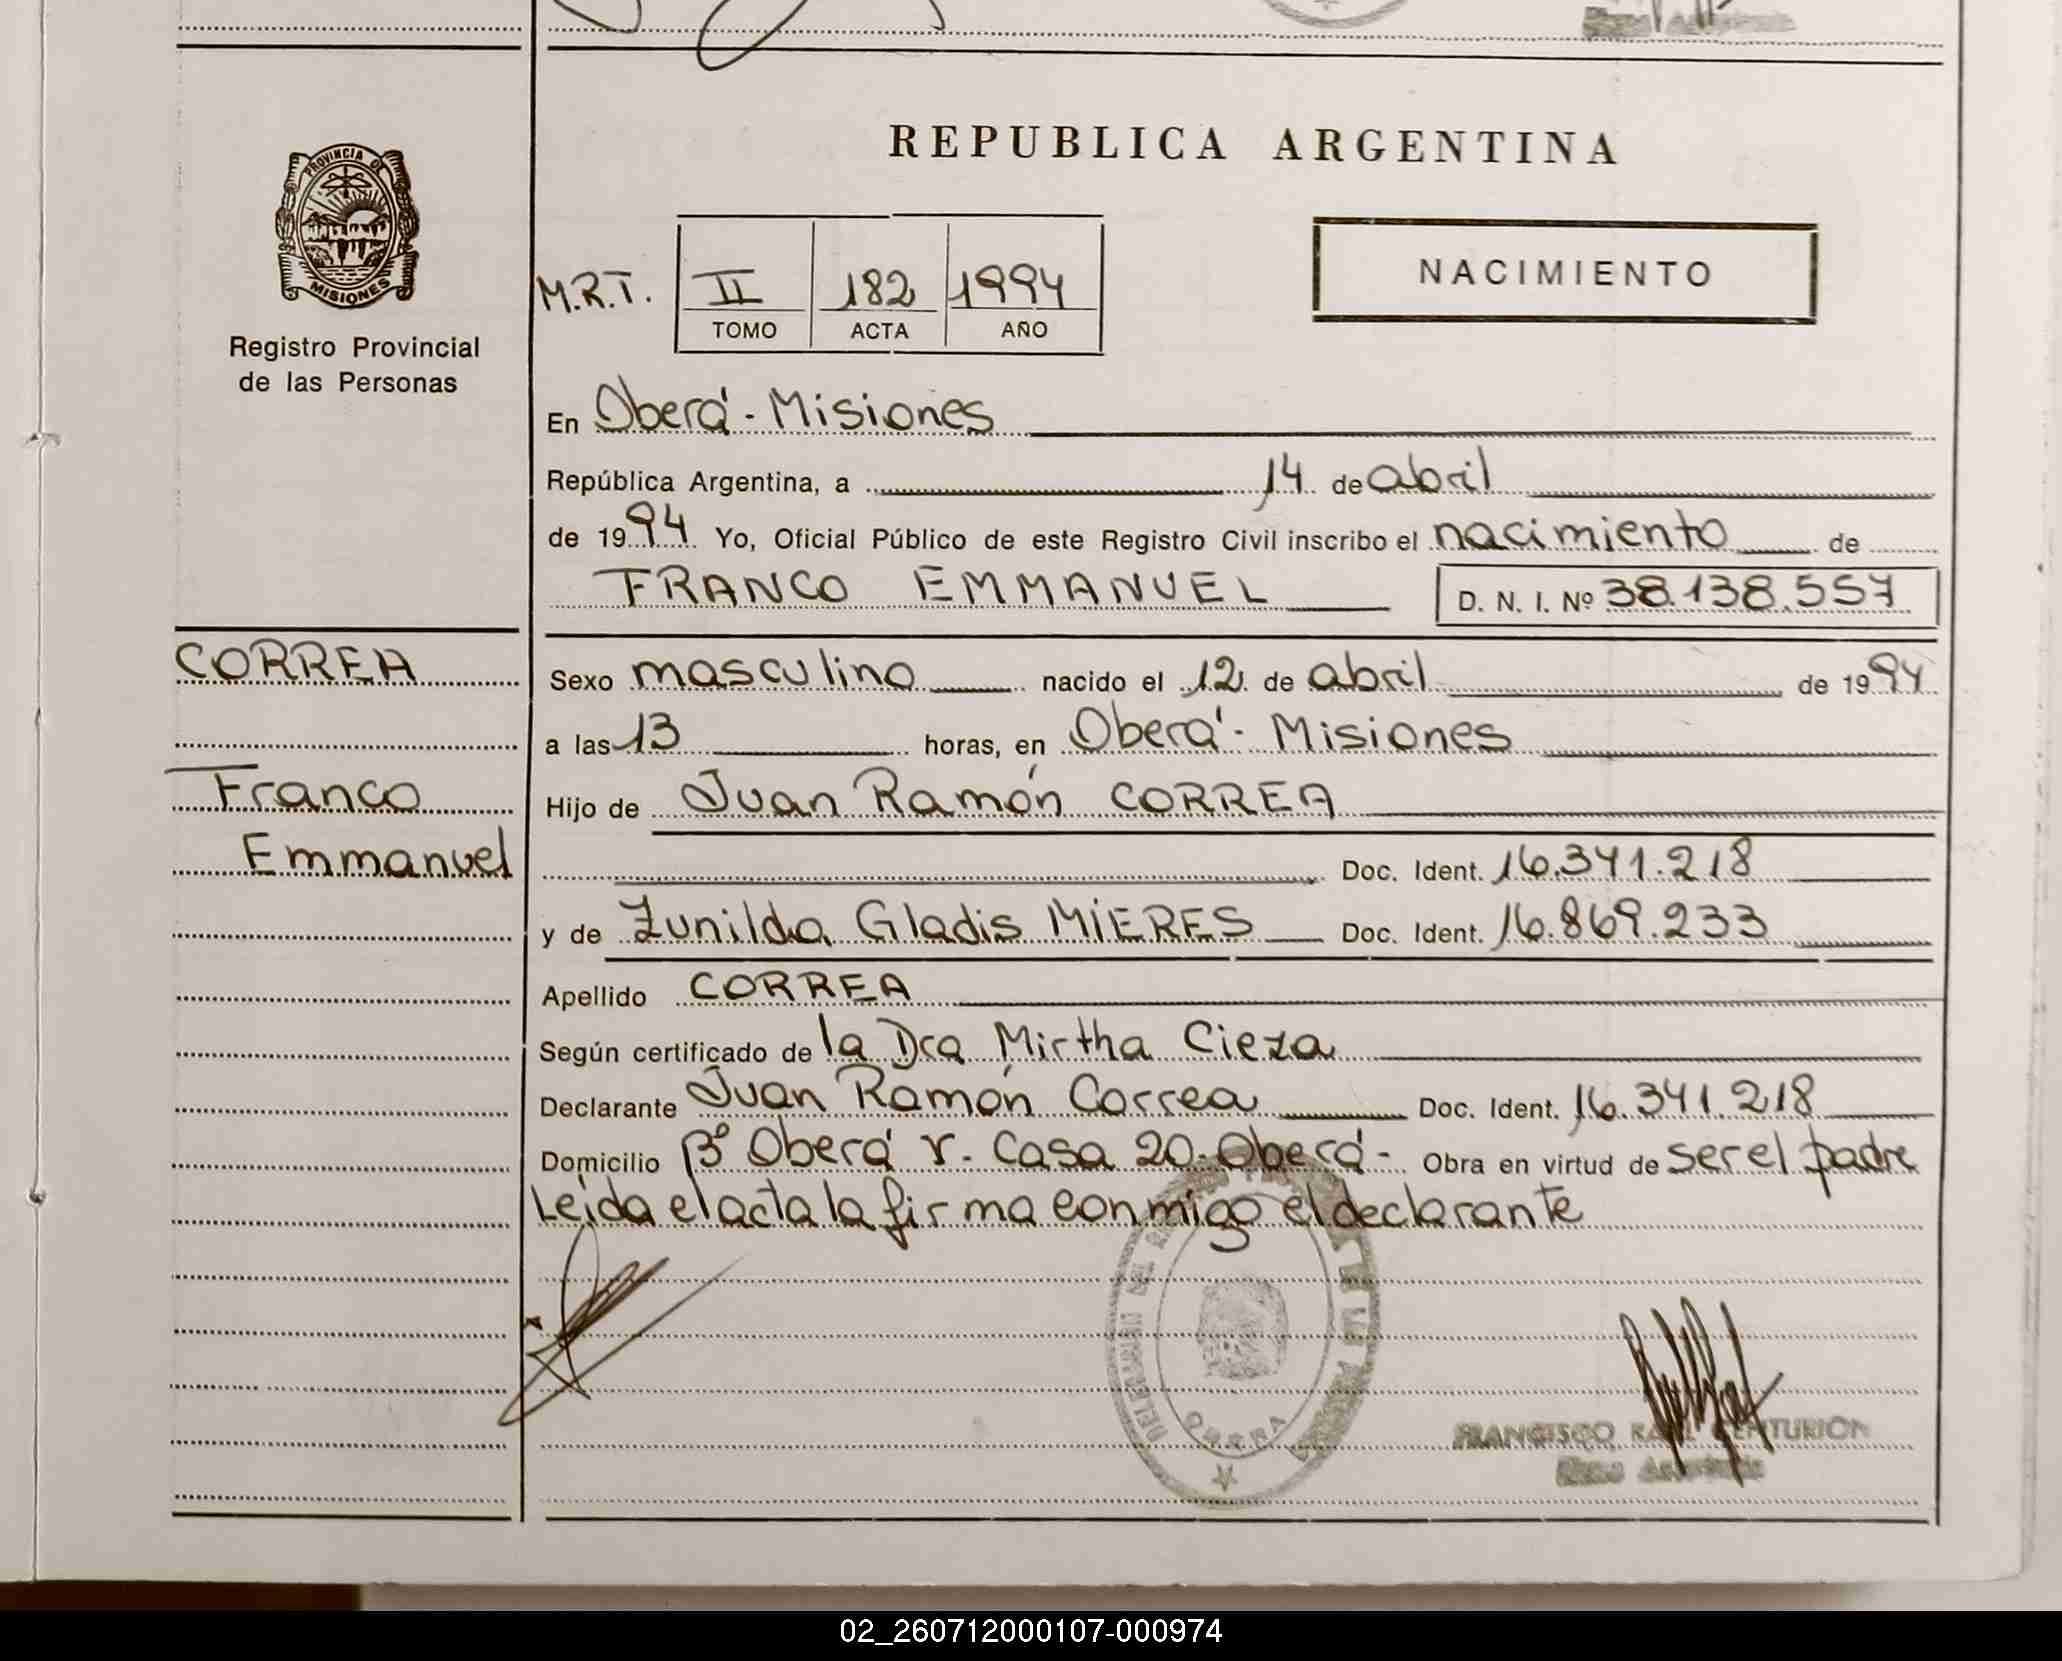 REPUBLICA ARGENTINA
PROVINCIA DE
MISIONES
Registro Provincial
de las Personas
M.R.T. II 182 1994
TOMO ACTA AÑO
NACIMIENTO
En Oberá - Misiones
República Argentina, a 14 de abril
de 1994 Yo, Oficial Público de este Registro Civil inscribo el nacimiento de
FRANCO EMMANUEL D. N. I. Nº 38.138.557
CORREA
Franco
Emmanuel
Sexo masculino nacido el 12 de abril de 1994
a las 13 horas, en Oberá - Misiones
Hijo de Juan Ramón CORREA
Doc. Ident. 16.341.218
y de Zunilda Gladis MIERES Doc. Ident. 16.869.233
Apellido CORREA
Según certificado de la Dra Mirtha Cieza
Declarante Juan Ramón Correa Doc. Ident. 16.341.218
Domicilio Bº Oberá V. Casa 20. Oberá - Obra en virtud de ser el padre
Leída el acta la firma conmigo el declarante
OBERA
FRANCISCO RAUL CENTURION
02_260712000107-000974